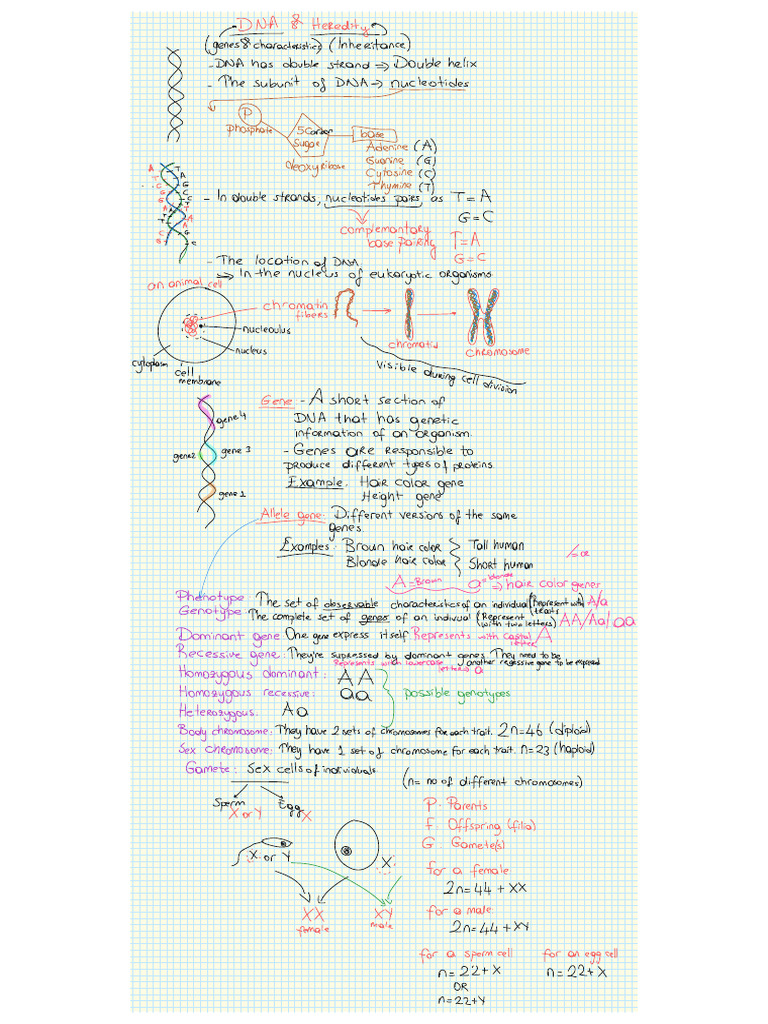 DNA & Heredity
(genes & characteristics) (Inheritance)
- DNA has double strand => Double helix
- The subunit of DNA -> nucleotides
P
phosphate
5 Carbon
Sugar
deoxyribose
base
Adenine (A)
Guanine (G)
Cytosine (C)
Thymine (T)
- In double strands, nucleotides pairs, as T = A
G = C
complementary
base pairing
T = A
G = C
- The location of DNA
=> In the nucleus of eukaryotic organisms
an animal cell
chromatin
fibers
nucleoulus
nucleus
cytoplasm
cell
membrane
chromatid
chromosome
Visible during cell division
Gene:- A short section of
DNA that has genetic
information of an organism.
- Genes are responsible to
produce different types of proteins
Example: Hair color gene
Height gene
gene 4
gene 3
gene 2
gene 1
Allele gene: Different versions of the same
genes.
Examples: Brown hair color
Blonde hair color
Tall human
Short human
/= or
A = Brown a = blonde => hair color genes
Phenotype: The set of observable characteristics of an individual (Represent with) A/a
traits
Genotype: The complete set of genes of an indivual (Represent with two letters) AA/Aa/aa
Dominant gene: One gene express itself Represents with capital letter A
Recessive gene: They're supressed by dominant genes. They need to be
another regessive gene to be exposed
Represents with lowercase letter => a
Homozygous dominant: AA
Homozygous recessive: aa
Heterozygous: Aa
possible genotypes
Body chromosome: They have 2 sets of chromosomes for each trait. 2n=46 (diploid)
Sex chromosome: They have 1 set of chromosome for each trait. n=23 (haploid)
Gamete: Sex cells of individuals
(n = no of different chromosomes)
Sperm
X or Y
Egg
X
X or Y
X
XX
female
XY
male
P: Parents
F: Offspring (filia)
G: Gamete(s)
for a female
2n = 44 + XX
for a male
2n = 44 + XY
for a sperm cell
n = 22 + X
OR
n = 22 + Y
for an egg cell
n = 22 + X